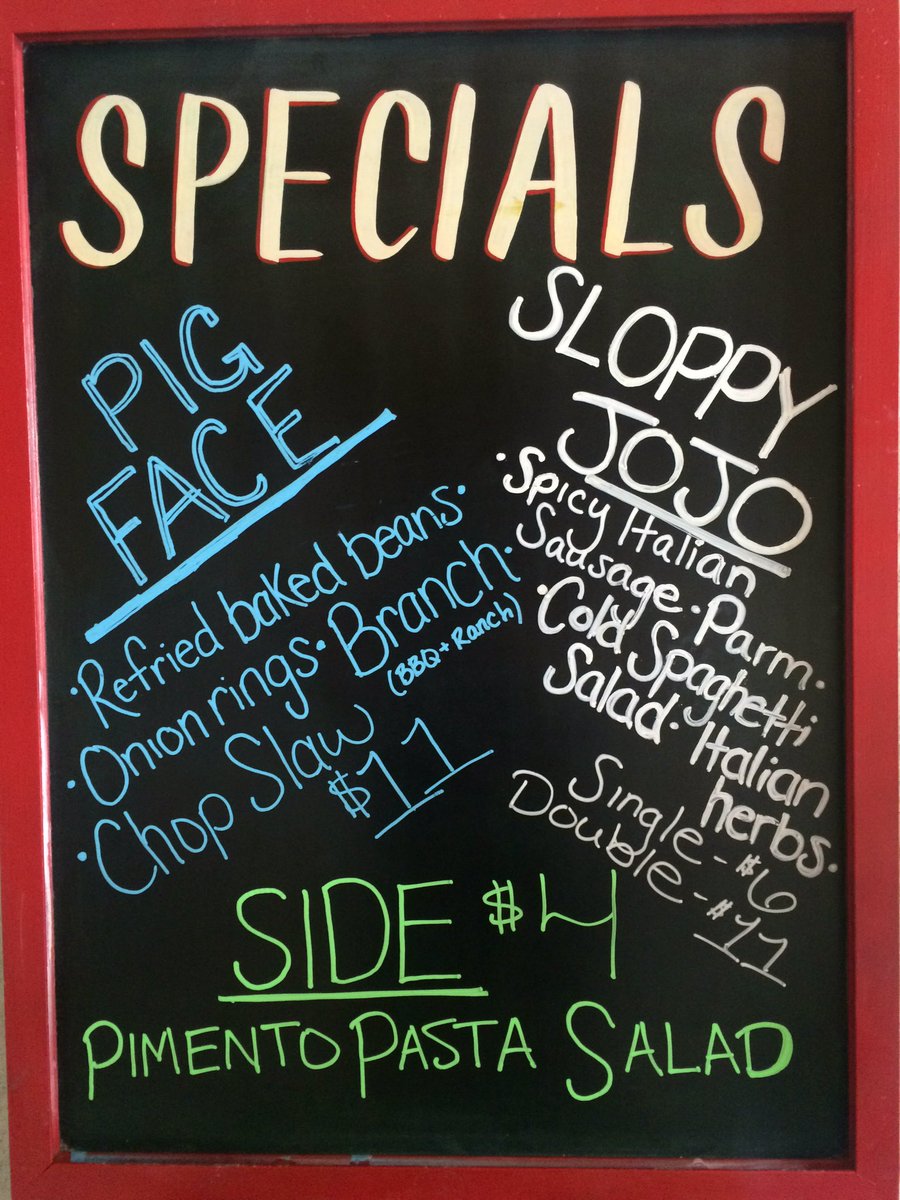 SPECIALS
PIG
FACE
·Refried baked beans·
·Onion rings·Branch·
(BBQ + Ranch)
·Chop Slaw
$11
SLOPPY
JOJO
·Spicy Italian
Sausage·Parm·
·Cold Spaghetti
Salad·Italian
herbs·
Single-$6
Double-$11
SIDE $4
PIMENTO PASTA SALAD